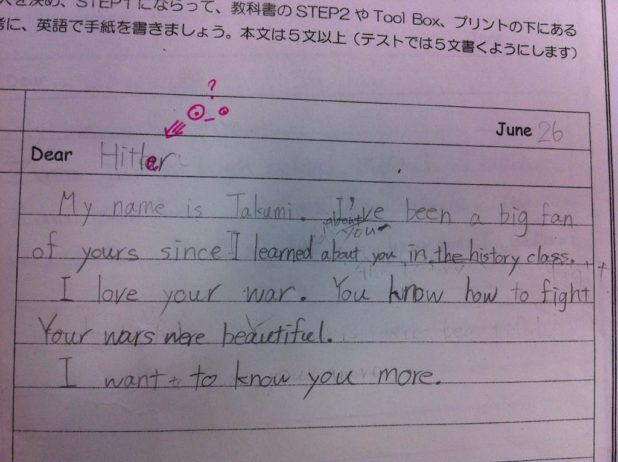 人を決め、STEP1 にならって、教科書の STEP2 や Tool Box、プリントの下にある
考に、英語で手紙を書きましょう。本文は5文以上（テストでは5文書くようにします）
?
June 26
Dear Hitler
My name is Takumi. I've been a big fan
about
you
of yours since I learned about you in the history class.
I love your war. You know how to fight
Your wars were beautiful.
I want to know you more.